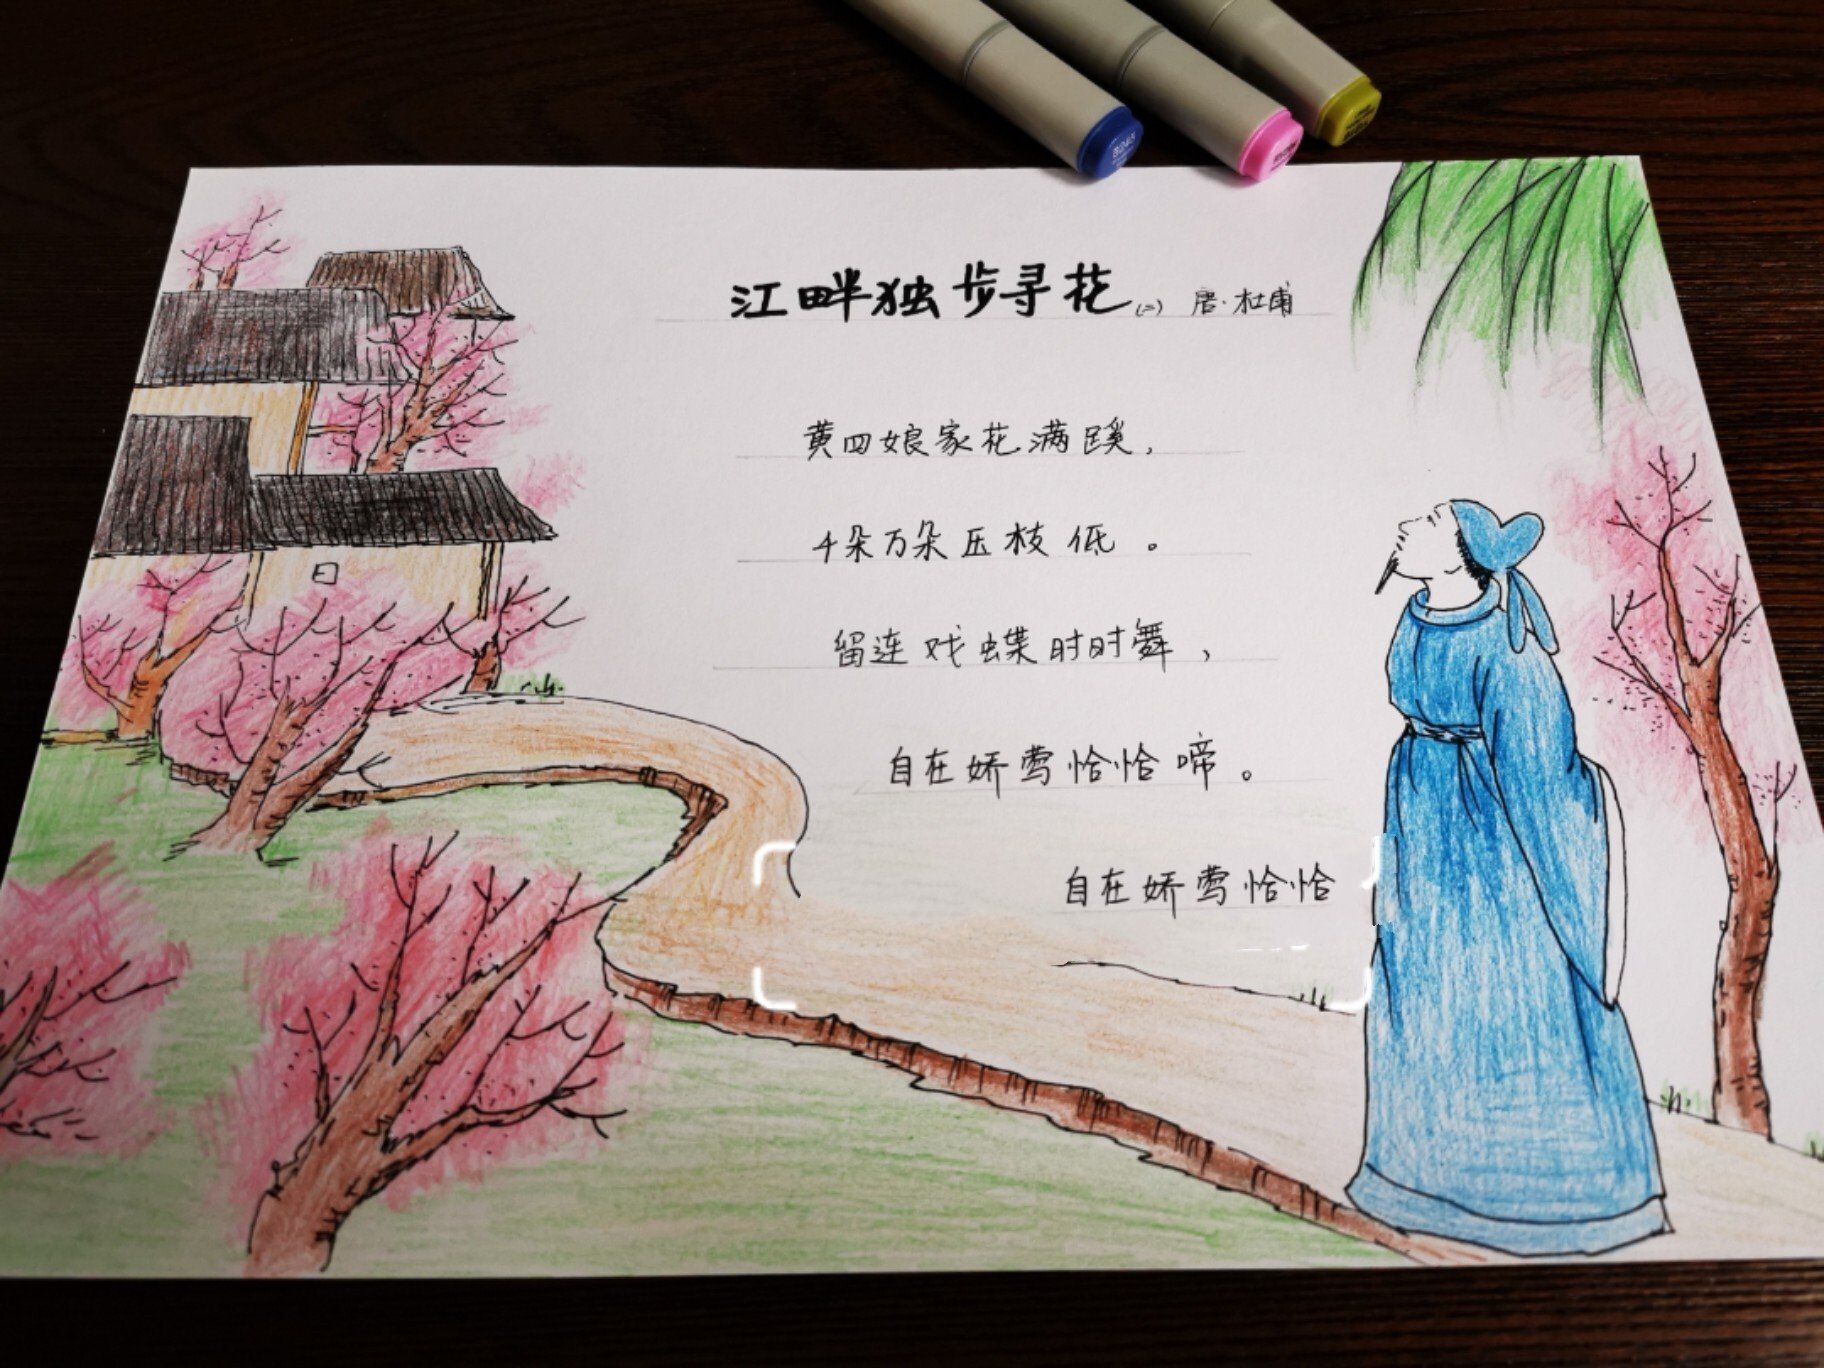 江畔独步寻花(六) 唐·杜甫
黄四娘家花满蹊，
千朵万朵压枝低。
留连戏蝶时时舞，
自在娇莺恰恰啼。
自在娇莺恰恰